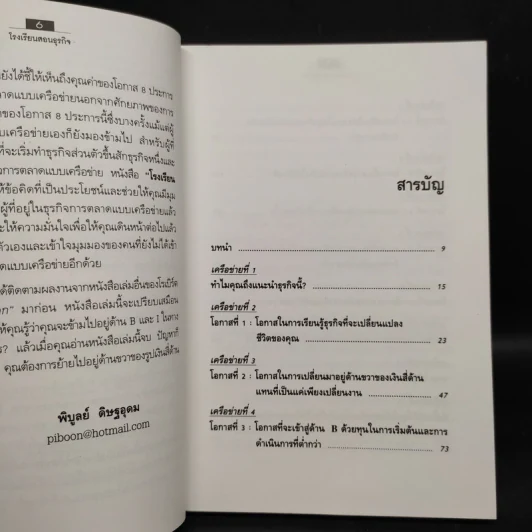 6
โรงเรียนสอนธุรกิจ
ยังได้ชี้ให้เห็นถึงคุณค่าของโอกาส 8 ประการ
ลาดแบบเครือข่ายนอกจากศักยภาพของการ
ของโอกาส 8 ประการนี้ซึ่งบางครั้งแม้แต่ผู้
บบเครือข่ายเองก็ยังมองข้ามไป สำหรับผู้ที่
ที่จะเริ่มทำธุรกิจส่วนตัวขึ้นสักธุรกิจหนึ่งและ
วการตลาดแบบเครือข่าย หนังสือ "โรงเรียน
ห้ข้อคิดที่เป็นประโยชน์และช่วยให้คุณมีมุม
ผู้ที่อยู่ในธุรกิจการตลาดแบบเครือข่ายแล้ว
ะให้ความมั่นใจเพื่อให้คุณเดินหน้าต่อไปแล้ว
ตัวเองและเข้าใจมุมมองของคนที่ยังไม่ได้เข้า
ดแบบเครือข่ายอีกด้วย
ด้ติดตามผลงานจากหนังสือเล่มอื่นของโรเบิร์ต
มาก่อน หนังสือเล่มนี้จะเปรียบเสมือน
ห้คุณรู้ว่าคุณจะข้ามไปอยู่ด้าน B และ I ในทาง
ร? แล้วเมื่อคุณอ่านหนังสือเล่มนี้จบ ปัญหาก็
คุณต้องการย้ายไปอยู่ด้านขวาของรูปเงินสี่ด้าน
พิบูลย์ ดิษฐอุดม
piboon@hotmail.com
สารบัญ
บทนำ 9
เครือข่ายที่ 1
ทำไมคุณถึงแนะนำธุรกิจนี้? 15
เครือข่ายที่ 2
โอกาสที่ 1 : โอกาสในการเรียนรู้ธุรกิจที่จะเปลี่ยนแปลง
ชีวิตของคุณ 23
เครือข่ายที่ 3
โอกาสที่ 2 : โอกาสในการเปลี่ยนมาอยู่ด้านขวาของเงินสี่ด้าน
แทนที่เป็นแค่เพียงเปลี่ยนงาน 47
เครือข่ายที่ 4
โอกาสที่ 3 : โอกาสที่จะเข้าสู่ด้าน B ด้วยทุนในการเริ่มต้นและการ
ดำเนินการที่ต่ำกว่า 73